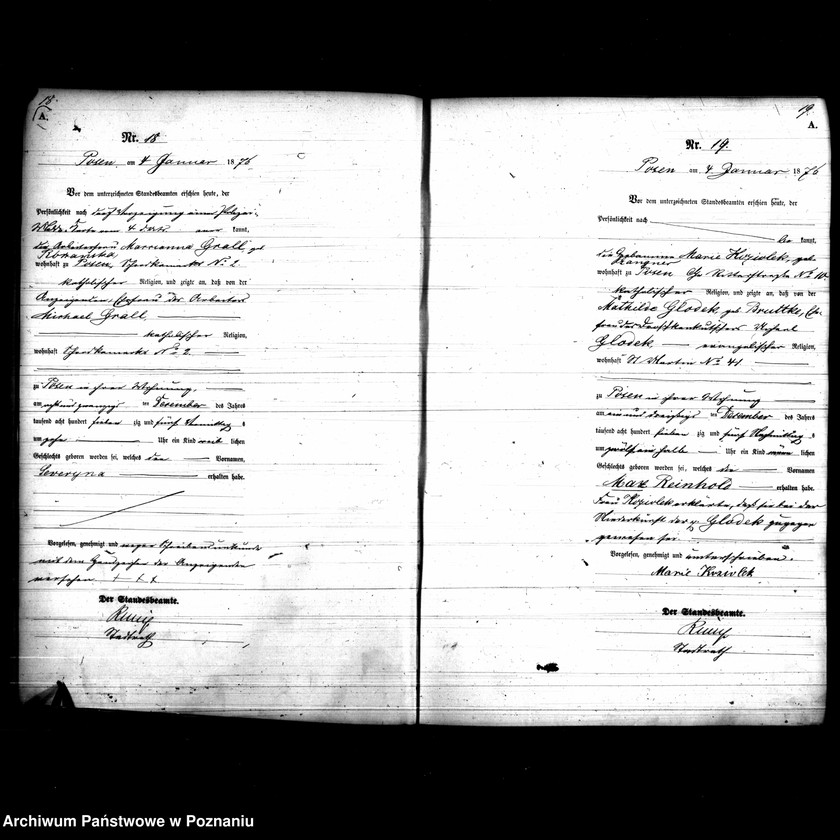 18.
A.
Nr. 18
Posen am 4 Januar 1876
Vor dem unterzeichneten Standesbeamten erschien heute, der
Persönlichkeit nach
Karte vom 4 kannt,
die Arbeiterfrau Marrianna Grall, geb
wohnhaft zu Posen, No 2
katholischer Religion, und zeigte an, daß von der
Anzeigenden, Ehefrau des Arbeiters
Michael Grall
katholischer Religion,
wohnhaft No 2
zu Posen in ihrer Wohnung,
am acht und zwanzigsten Dezember des Jahres
tausend acht hundert sieben zig und fünf Vormittags
um zehn Uhr ein Kind weib lichen
Geschlechts geboren worden sei, welches den Vornamen,
Severyna erhalten habe.
Vorgelesen, genehmigt und wegen Schreibensunkunde
mit dem Handzeichen der Anzeigenden
versehen + + +
Der Standesbeamte.
Stadtrath
19.
A.
Nr. 19
Posen am 4 Januar 1876
Vor dem unterzeichneten Standesbeamten erschien heute, der
Persönlichkeit nach
be kannt,
die Hebamme Marie Koziolek, geb.
wohnhaft zu Posen
katholischer Religion, und zeigte an, daß von der
Mathilde Glodek, geb Bruttke, Ehe
frau des
Glodek evangelischer Religion,
wohnhaft St Martin No 41
zu Posen in ihrer Wohnung
am ein und dreißigsten Dezember des Jahres
tausend acht hundert sieben zig und fünf Nachmittags
um zwölf ein halb Uhr ein Kind männ lichen
Geschlechts geboren worden sei, welches die Vornamen
Max Reinhold erhalten habe.
Frau Koziolek erklärte, daß sie bei der
Niederkunft der p. Glodek zugegen
gewesen sei
Vorgelesen, genehmigt und unterschrieben.
Marie Koziolek
Der Standesbeamte.
Stadtrath
Archiwum Państwowe w Poznaniu